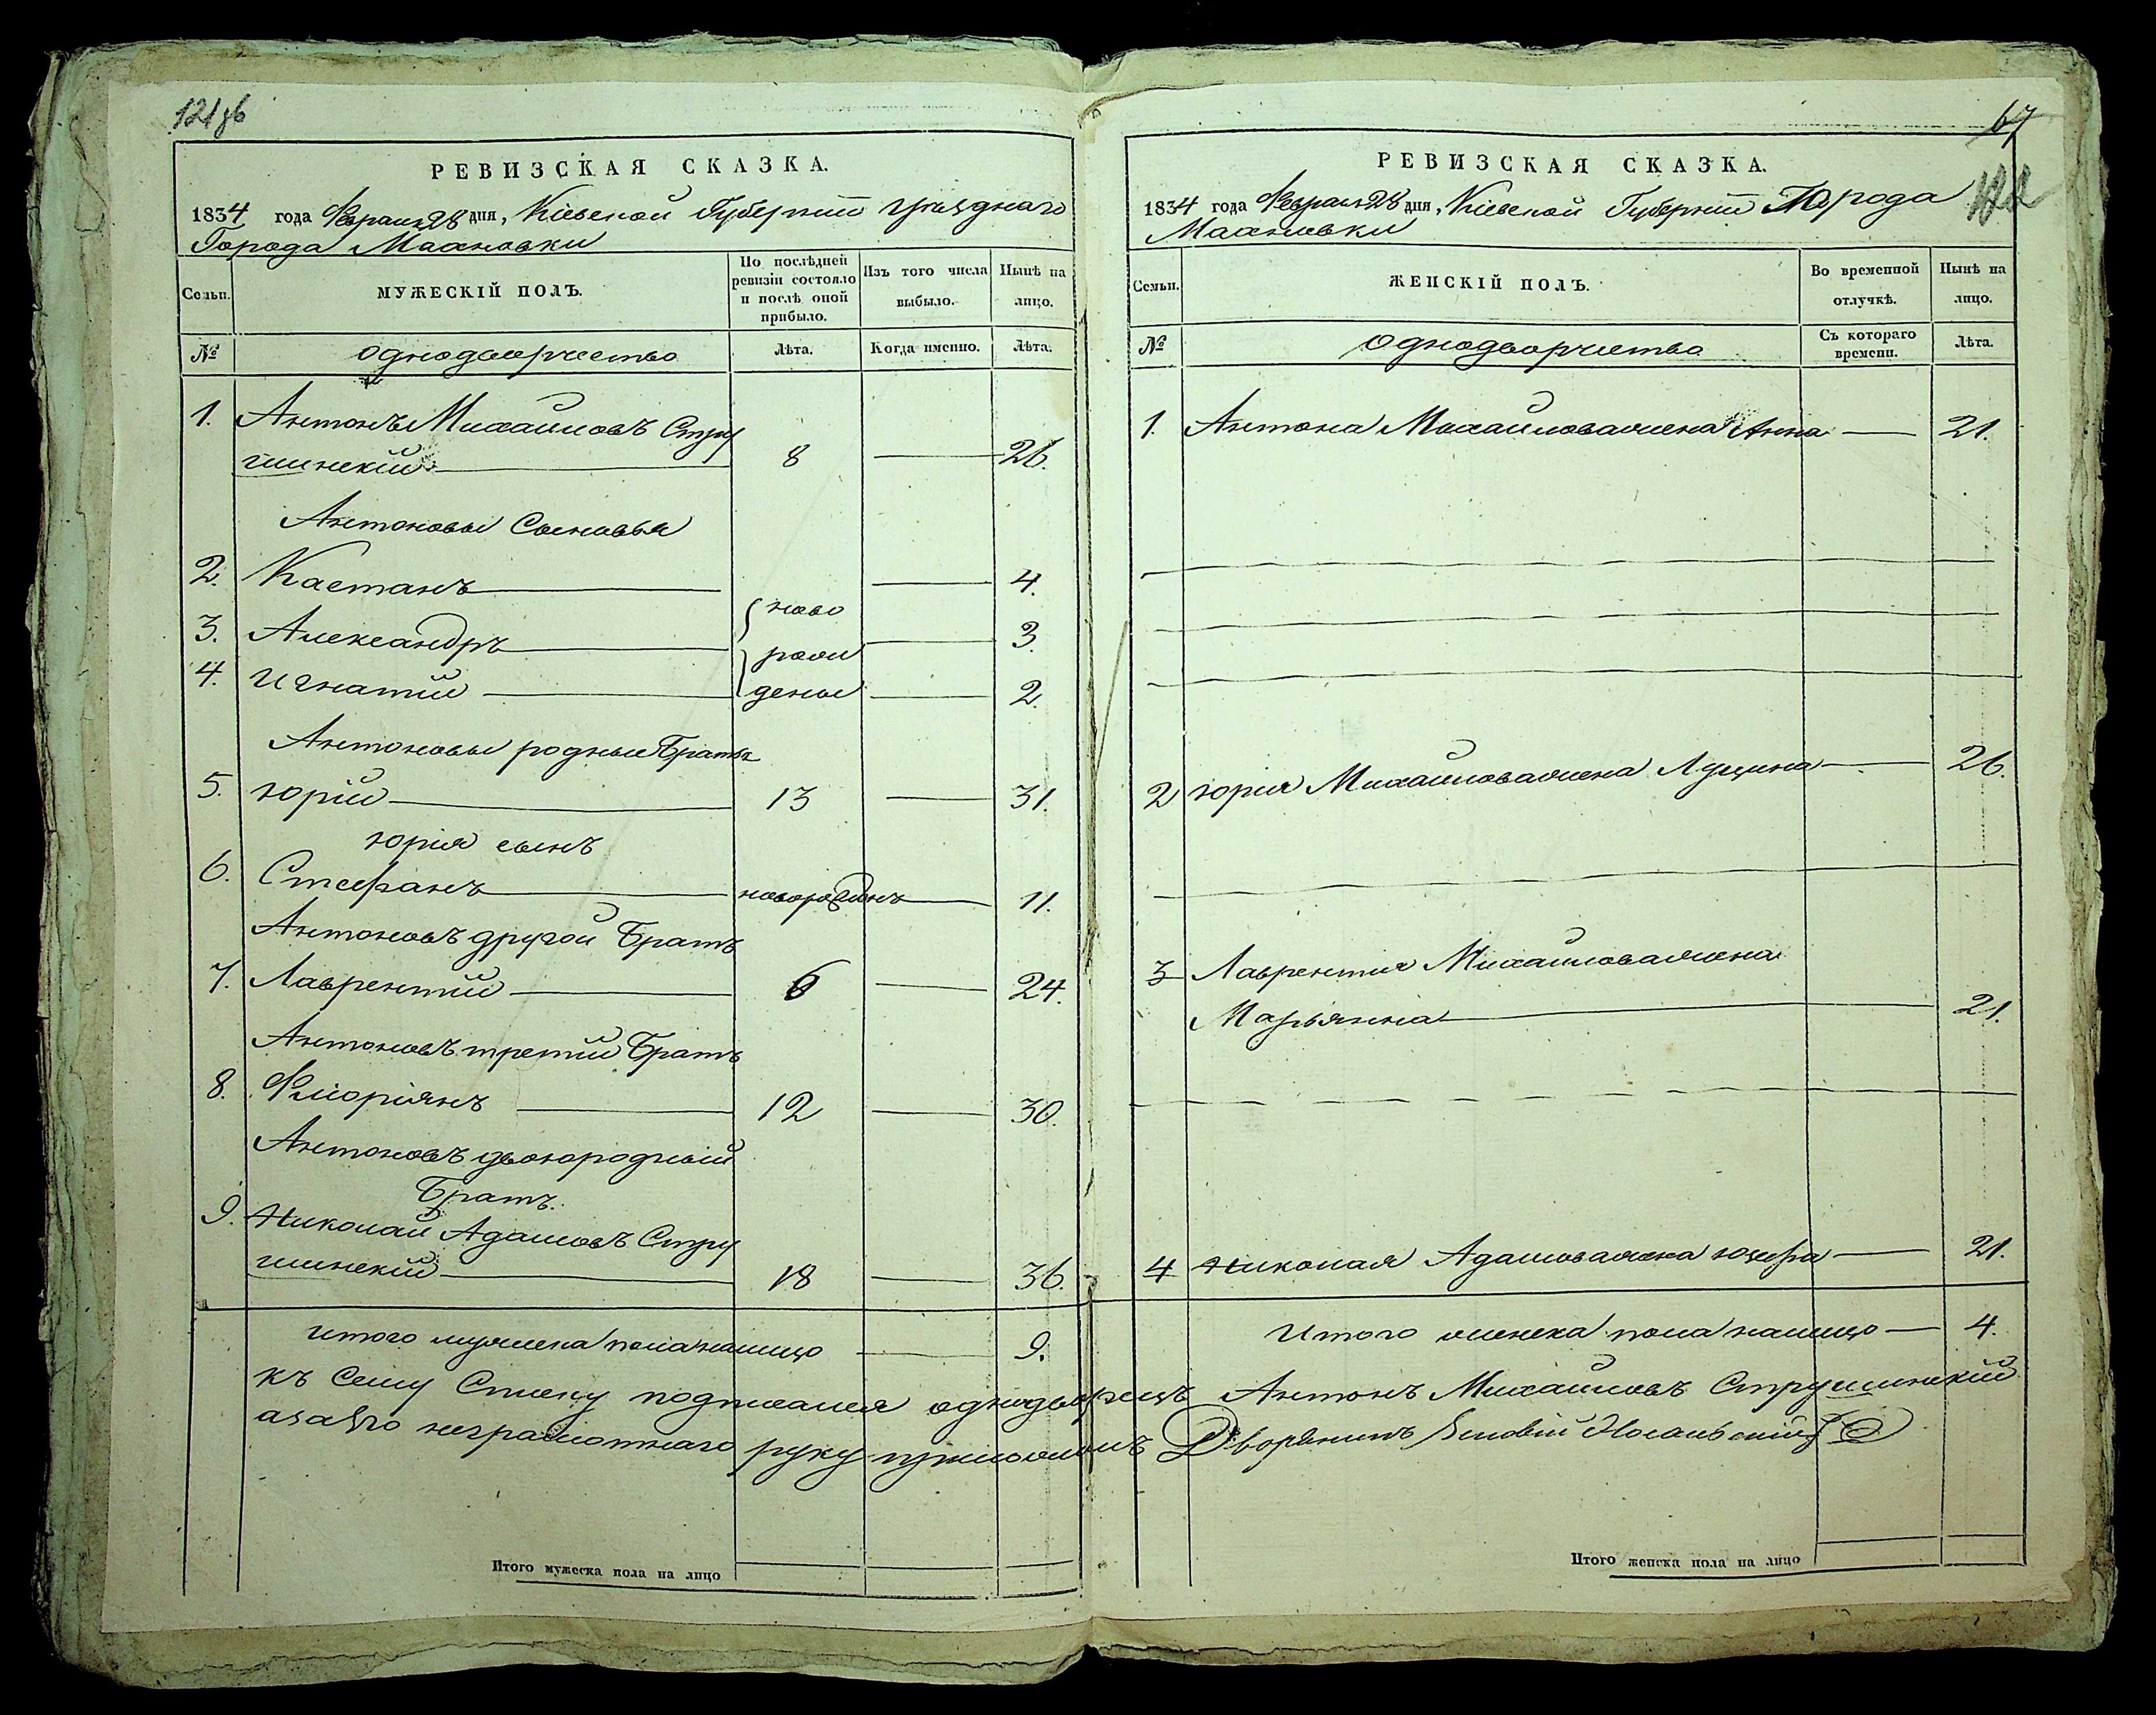 РЕВИЗСКАЯ СКАЗКА.
1834 года Февраля 28 дня, Кіевской Губерніи уѣзднаго
Города Махновки
Семьи.
МУЖЕСКІЙ ПОЛЪ.
По послѣдней ревизіи состояло и послѣ оной прибыло.
Изъ того числа выбыло.
Нынѣ на лицо.
№
однодворчество
Лѣта.
Когда именно.
Лѣта.
1. Антонъ Михайловъ Стру
шинскій 8 26.
Антоновы Сыновья
2. Каетанъ 4.
3. Александръ 3.
4. Игнатій 2.
ново
рож
дены
Антоновы родные Братья
5. Юрій 13 31.
Юрія сынъ
6. Стефанъ 11.
Антоновъ другой Братъ
7. Лаврентій 6 24.
Антоновъ третій Братъ
8. Флоріянъ 12 30.
Антоновъ двоюродный
Братъ.
9. Николай Адамовъ Стру
шинскій 18 36.
Итого мужеска пола налицо 9.
67
РЕВИЗСКАЯ СКАЗКА.
1834 года Февраля 28 дня, Кіевской Губерніи Города
Махновки
Семьи.
ЖЕНСКІЙ ПОЛЪ.
Во временной отлучкѣ.
Нынѣ на лицо.
№
однодворчество
Съ котораго времени.
Лѣта.
1. Антона Михайлова жена Анна 21.
2 Юрія Михайлова жена Луцина 26.
3 Лаврентія Михайлова жена
Марьянна 21.
4 Николая Адамова жена Юзефа 21.
Итого женска пола налицо 4.
къ Сему Списку подписался однодворецъ Антонъ Михайловъ Струшинскій
а за его неграмотнаго руку приложилъ Дворянинъ
Итого мужеска пола на лицо
Итого женска пола на лицо